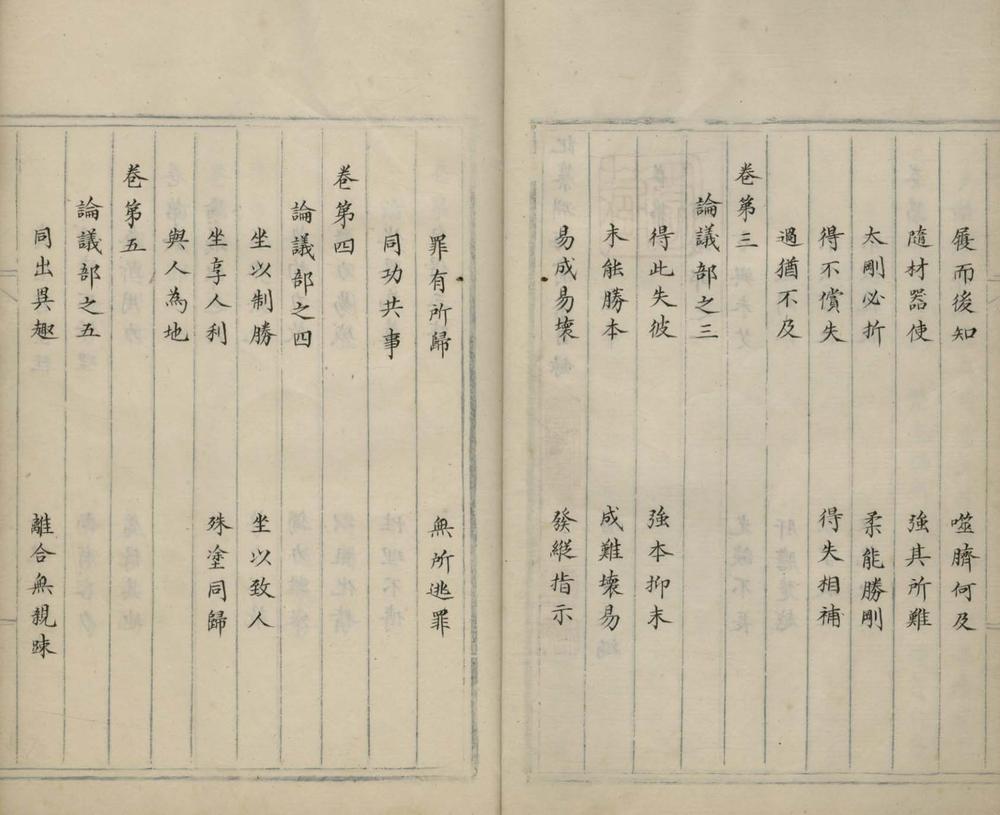 屨而後知 噬臍何及
隨材器使 強其所難
太剛必折 柔能勝剛
得不償失 得失相補
過猶不及
卷第三
論議部之三
得此失彼 強本抑末
末能勝本 成難壞易
易成易壞 發縱指示
罪有所歸 無所逃罪
同功共事
卷第四
論議部之四
坐以制勝 坐以致人
坐享人利 殊塗同歸
與人為地
卷第五
論議部之五
同出異趣 離合無親疎